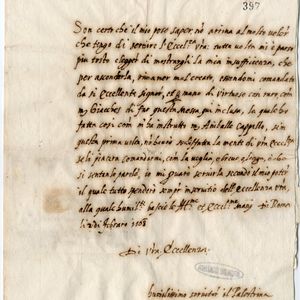 397
Son certo ch'il mio poco saper, nō potrà al molto uolere
che tengo di seruire l'Eccell.ᵃ vra: tutta uolta mi è parso
più tosto elegger di mostrargli la mia insufficenza, che
per asconderla, rimaner mal creato, essendomi comandato
da sì eccellente signor, et p mano di virtuoso così raro, com'è
m. Giaches di far questa messa, qui inclusa, la quale ho
fatta così com'm'ha instrutto m. Aniballe Cappello, se in
questa prima uolta, nō hauerò sattisfatta la mente di vra Eccell.ᵃ
se li piacerà comandarmi, com la voglia, o breue, o longa, o ch si
senta le parole, io mi prouerò seruirla secondo il mio poter
il quale tutto spenderò sempre in seruitio dell'Eccellenza vra,
alla quale humil.ᵗᵉ bascio le
di Roma
li 2 di febraro 1568
Di vra Eccellenza
humilissimo seruitor il Palestrina